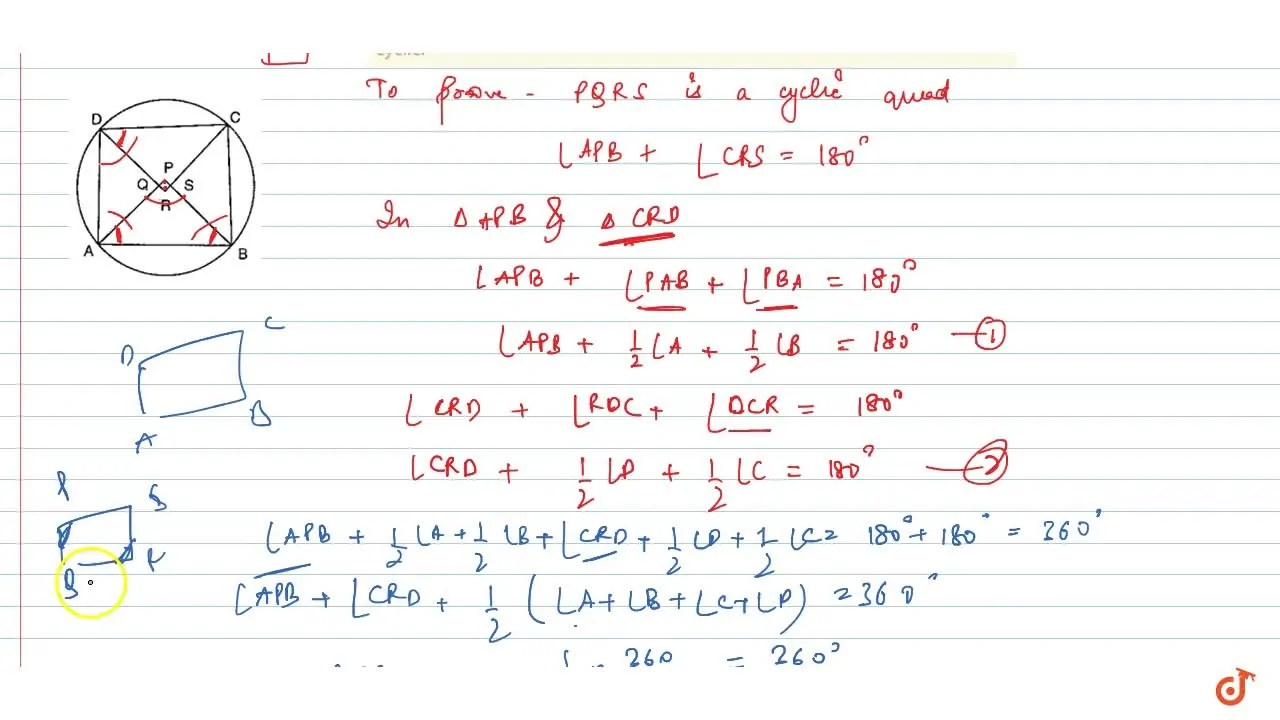 To prove - PQRS is a cyclic quad
∟APB + ∟CRS = 180°
In Δ APB & Δ CRD
∟APB + ∟PAB + ∟PBA = 180°
∟APB + 1/2 ∟A + 1/2 ∟B = 180° — ①
∟CRD + ∟RDC + ∟DCR = 180°
∟CRD + 1/2 ∟D + 1/2 ∟C = 180° — ②
∟APB + 1/2 ∟A + 1/2 ∟B + ∟CRD + 1/2 ∟D + 1/2 ∟C = 180° + 180° = 360°
∟APB + ∟CRD + 1/2 (∟A + ∟B + ∟C + ∟D) = 360°
360 = 360°
D C
P
Q S
R
A B
D C
A B
S
R